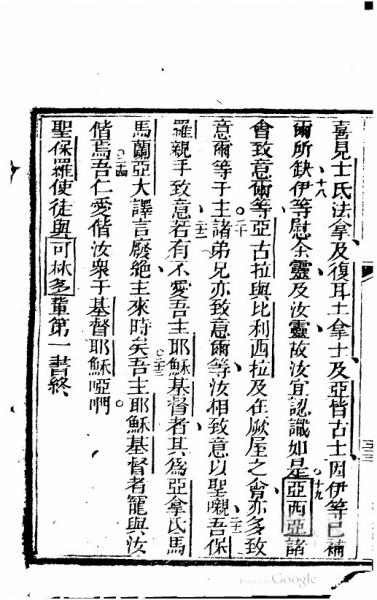 喜見士氏法拿及復耳土拿士及亞皆古士因伊等已補
十八
爾所缺伊等慰余靈及汝靈故汝宜認識如是亞西亞諸
十九
會致意爾等亞古拉與比利西拉及在厥屋之會亦多致
二十
意爾等于主諸弟兄亦致意爾等汝相致意以聖嚫吾保
二一
羅親手致意若有不愛吾主耶穌基督者其為亞拿氐馬
二二
馬蘭亞大譯言廢絶主來時矣吾主耶穌基督者寵與汝
二三
偕焉吾仁愛偕汝衆于基督耶穌啞們
二四
聖保羅使徒與可林多輩第一書終
Google